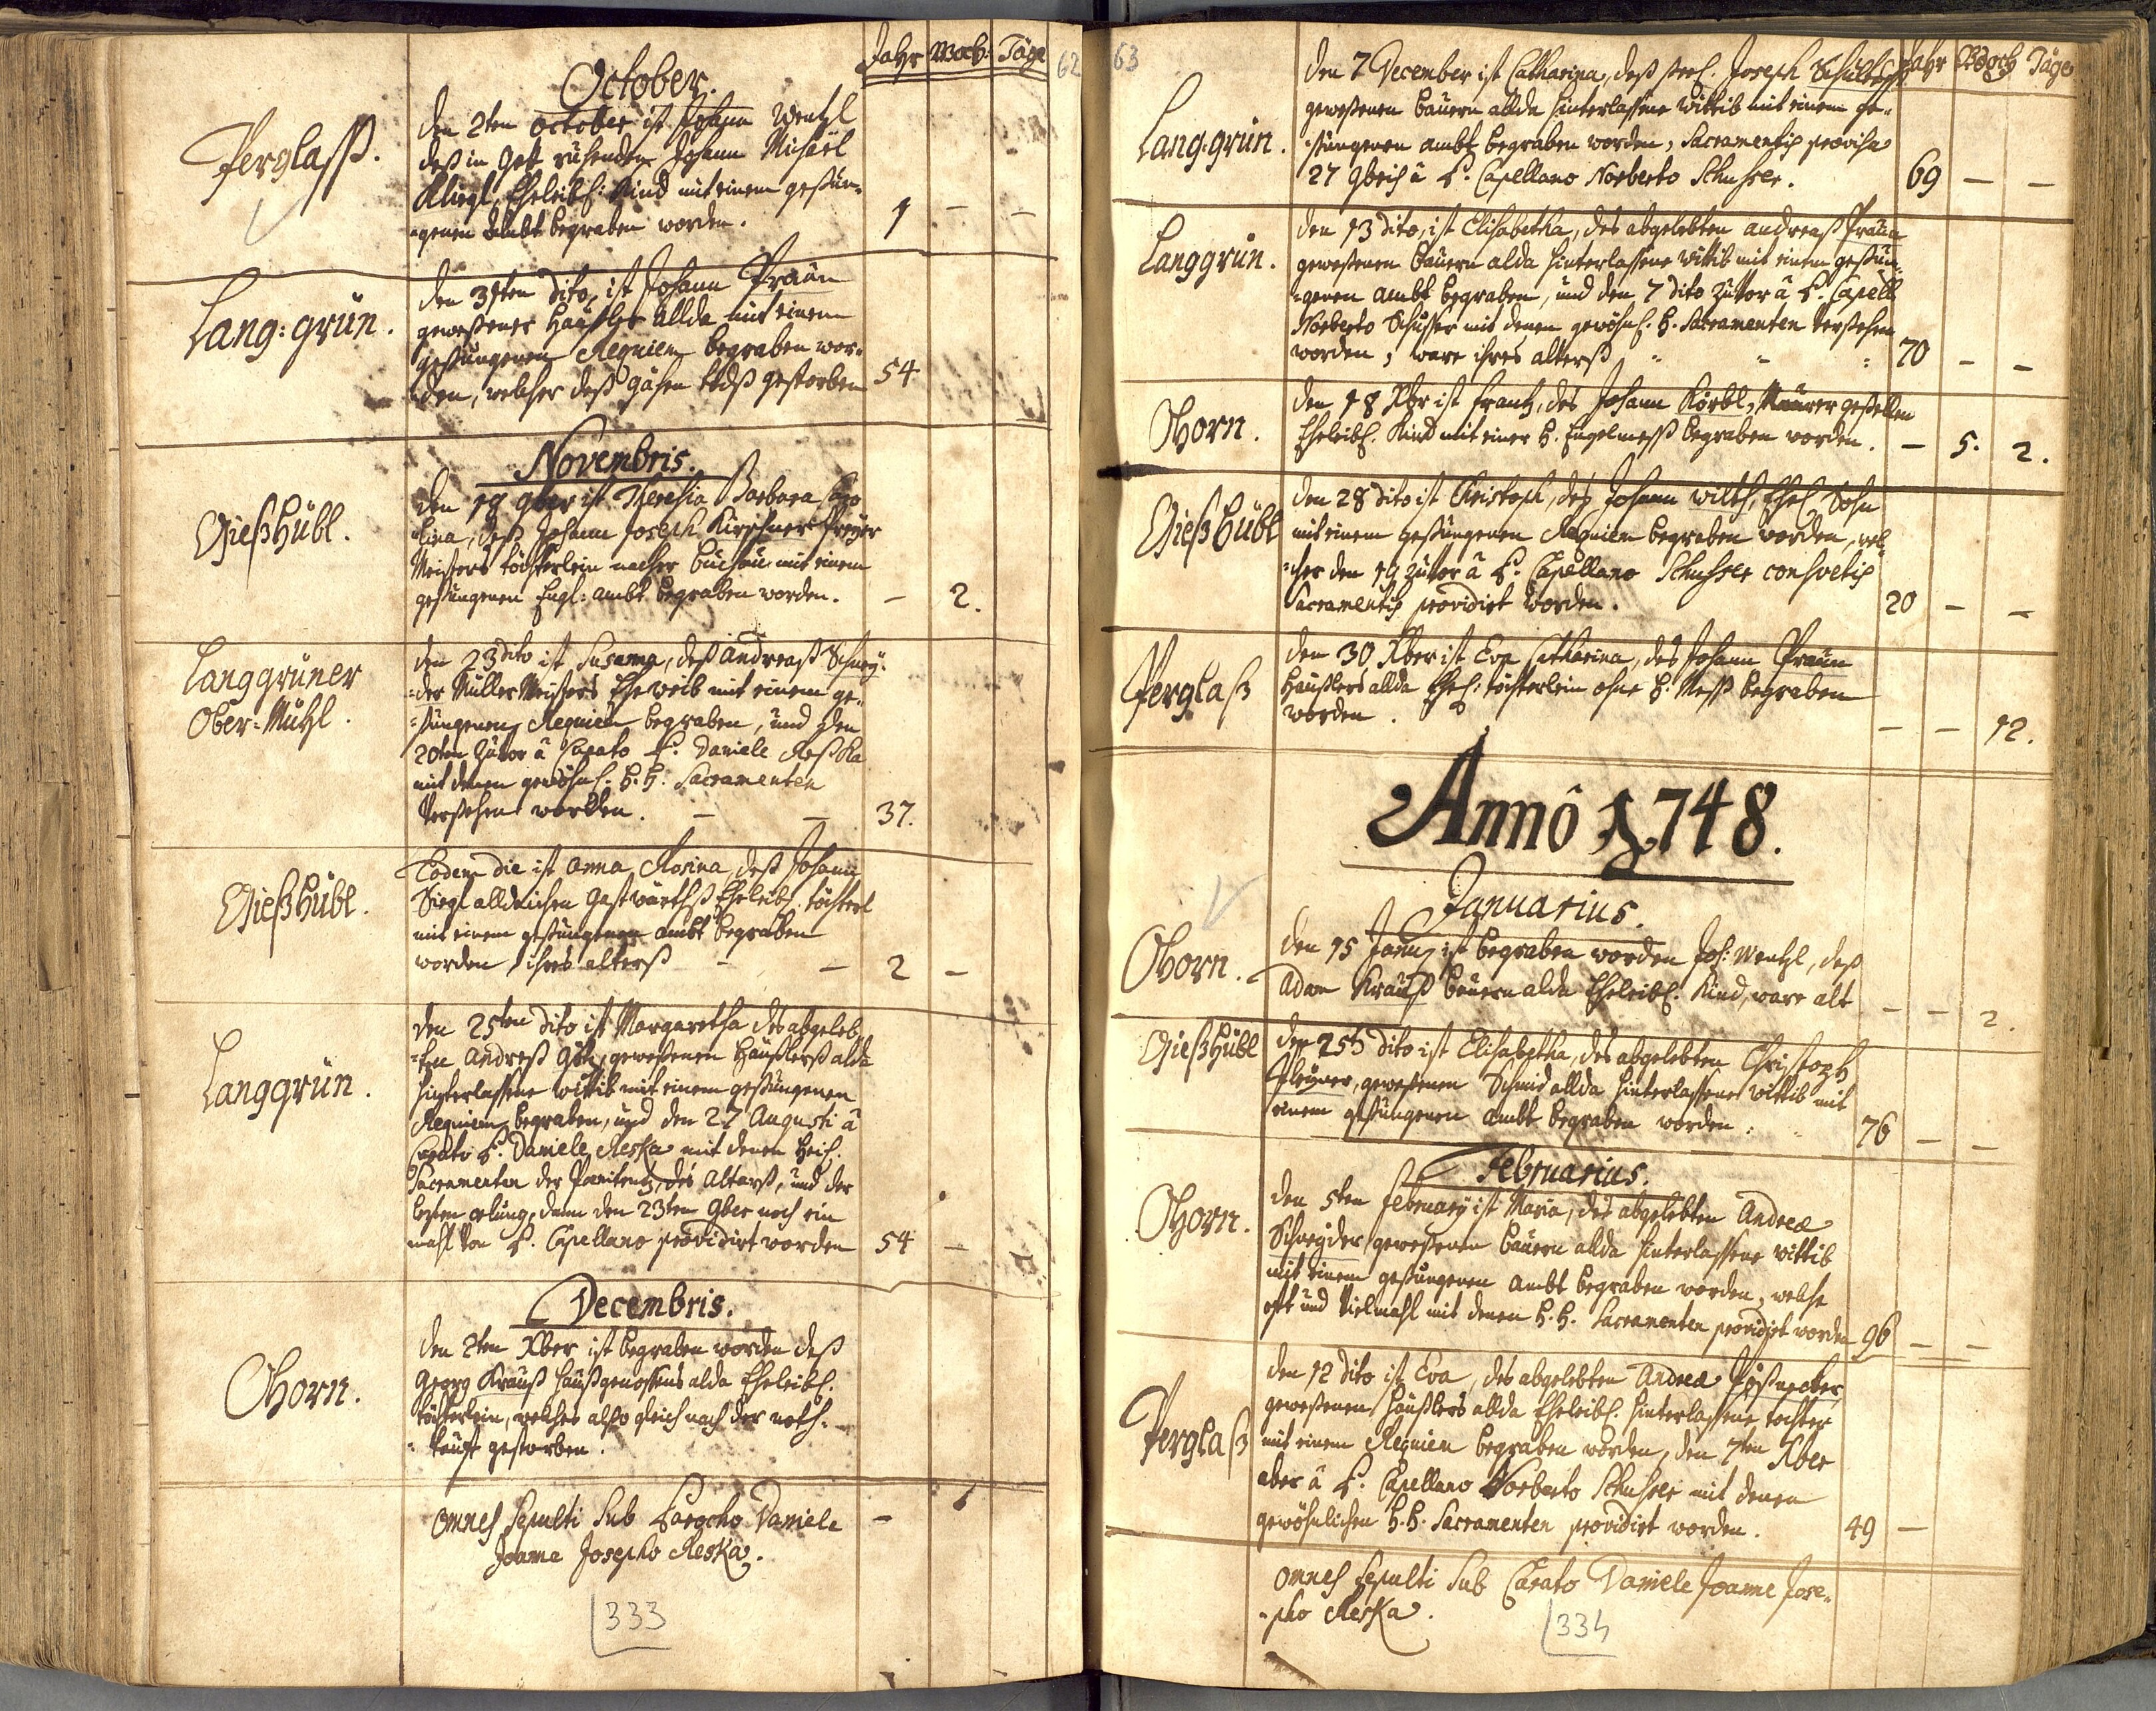 Jahr Woch: Täge
62
October.
Perglaß.
den 2ten october ist Johann Wentzl
deß in Gott ruhenden Johann Michael
Kliegl, Eheleibl: Kind mit einem gesun-
-genen Ambt begraben worden.
1 — —
Lang: grün.
den 31ten dito, ist Johann Praün
geweßener Haußler allda mit einem
gesungenen Requiem begraben wor-
den, welcher deß gähen todß gestorben
54
Novembris.
Gießhübl.
den 18 9ber ist Theresia Barbara Caro
lina, deß Johann Joseph Kirschner
Meisters töchterlein nacher Buchau mit einem
gesungenen Engl: ambt begraben worden.
— 2.
Langgrüner
Ober-Mühl.
den 23 dito ist Susanna, deß Andreaß Schney-
-der Müller Meisters Eheweib mit einem ge-
-sungenen Requiem begraben, und den
20ten zuvor â Curato P. Daniele Reska
mit denen gewöhnl. H. H. Sacramenten
Versehen worden. — —
37.
Gießhübl.
Eodem die ist Anna Rosina, deß Johann
Siegl alldasichen Gastwürthß Eheleibl. töchterl
mit einem gesungenen ambt begraben
worden ihres alterß — —
2 —
Langgrün.
den 25ten dito ist Margaretha des abgeleb-
-ten Andreß Götz, geweßenen Häußlerß alda
hinterlassene wittib mit einem gesungenen
Requiem begraben, und den 27 Augusti â
Curato P. Daniele Reska mit denen Heil.
Sacramenten der Poenitentz, des Altarß, und der
letzten oelung, dann den 23ten 9ber noch ein
mahl von P. Capellano providirt worden
54 —
Decembris.
Thorn.
den 2ten Xber ist begraben worden deß
Georg Krauß Haußgenossens alda Eheleibl.
töchterlein, welches also gleich nach der noth-
-tauff gestorben.
—
omnes Sepulti Sub Parocho Daniele
Joanne Josepho Reska.
333
63
Jahr Woch Täge
Lang: grün.
den 7 December ist Catharina, deß seel. Joseph
geweßenen Bauern allda hinterlassene Wittib mit einem ge-
-sungenen ambt begraben worden, Sacramentis provisa
27 9bris â P. Capellano Norberto Schusser.
69 — —
Langgrün.
den 13 dito, ist Elisabetha, des abgelebten Andreaß Praün
geweßenen Bauern alda hinterlassene Wittib mit einem gesun-
-genen ambt begraben, und den 7 dito zuvor â P. Capell
Norberto Schusser mit denen gewöhnl. H. Sacramenten versehen
worden, ware ihres alterß
70 — —
Thorn.
den 18 Xbr ist Frantz, des Johann Körbl, Maurer gesellen
Eheleibl. Kind mit einer H. Engelmeß begraben worden.
— 5. 2.
Gießhübl
den 28 dito ist Christoph, des Johann Wilth, Ehel. Sohn
mit einem gesungenen Requiem begraben worden, wel-
-cher den 19 zuvor â P. Capellano Schusser consvetis
Sacramentis providirt worden.
20 — —
Perglaß
den 30 Xber ist Eva Catharina, des Johann Praün
Haußlers allda Ehel: töchterlein ohne H. Meß begraben
worden.
— — 12.
Annô 1748.
Januarius.
Thorn.
den 15 Januarij ist begraben worden Joh: Wentzl, deß
Adam Krauß Bauern alda Eheleibl. Kind, ware alt
— — 2.
Gießhübl
den 25t dito ist Elisabetha, des abgelebten Christoph
geweßenen Schmid allda hinterlassene Wittib mit
einem gesungenen ambt begraben worden:
76 — —
Februarius.
Thorn.
den 5ten February ist Maria, des abgelebten Andreæ
Schneyder geweßenen Bauern allda hinterlassene Wittib
mit einem gesungenen ambt begraben worden, welche
oft und vielmahl mit denen H. H. Sacramenten providirt worden
96 — —
Perglaß
den 12 dito ist Eva, des abgelebten Andreæ
geweßenen Häußlers allda Eheleibl. hinterlassene tochter
mit einem Requiem begraben worden, den 7ten Xber
aber â P. Capellano Norberto Schusser mit denen
gewöhnlichen H. H. Sacramenten providirt worden.
49 —
omnes Sepulti Sub Curato Daniele Joanne Jose-
-pho Reska.
334